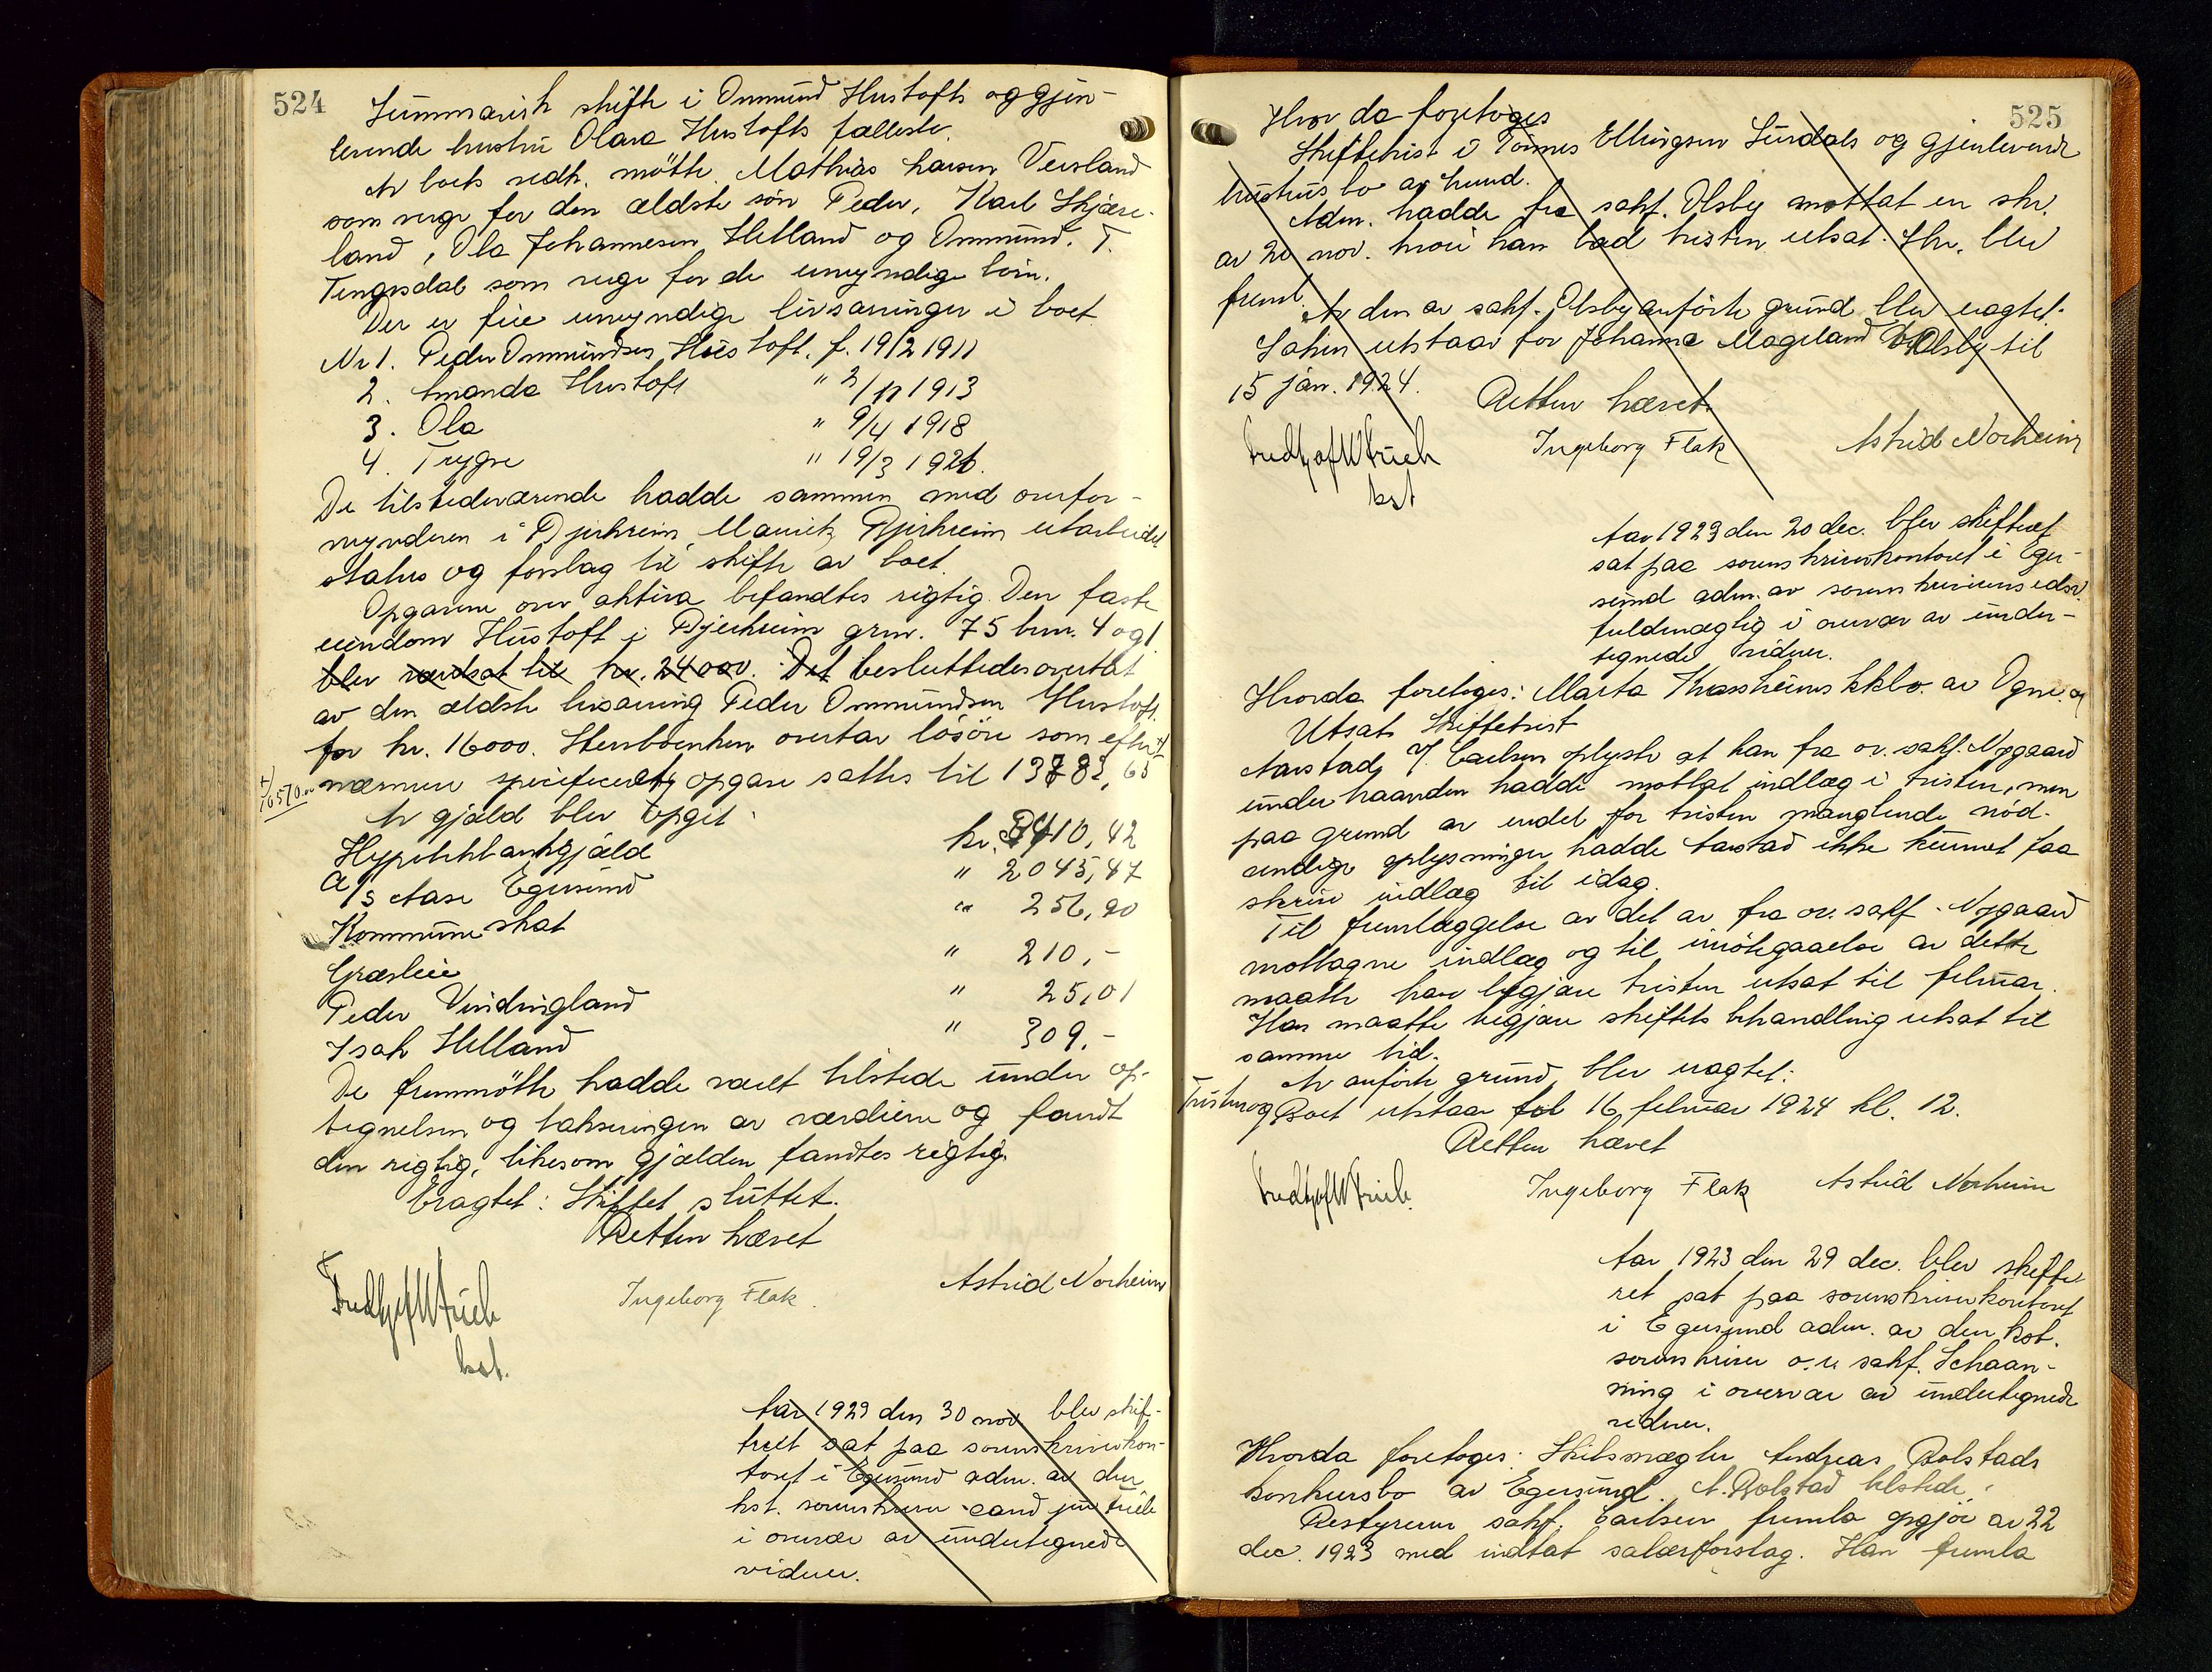 524
Summarisk skifte i Ommund Hustofts og gjen-
levende hustru Olava Hustofts fællesbo.
Av boets vedk. møtte. Mathias Larsen Veisland
som verge for den ældste søn Peder, Karl Skjæve-
land, Ola Johannesen Helland og Ommund. T.
Tengesdal som verge for de umyndige børn.
Der er fire umyndige livsarvinger i boet
Nr 1. Peder Ommundsen Hustoft. f. 19/2 1911
2. Amanda Hustoft " 2/11 1913
3. Ola " 9/4 1918
4. Trygve " 19/3 1921.
De tilstedeværende hadde sammen med overfor-
mynderen i Bjerkreim Mauritz Bjerkreim utarbeidet
status og forslag til skifte av boet.
Opgaven over aktiva befandtes rigtig. Den faste
eiendom Hustoft i Bjerkreim grnr. 75 brnr. 4 og 1
blev verdsat til kr. 24000. Det besluttedes overtat
av den ældste livsarving Peder Ommundsen Hustoft
for kr. 16000. Stervboenken overtar løsøre som efter +)
+) 16570.00
nærmere specificert opgave sattes til 13782,65
Av gjæld blev opgit:
Hypotekbankgjæld kr. 8410,42
A/S Aase Egersund " 2045,47
Kommuneskat " 256,90
Græsleie " 210,-
Peder Vindingland " 25,01
Isak Helland " 309.-
De fremmøtte hadde været tilstede under op-
tegnelsen og takseringen av værdiene og fandt
den rigtig, likesom gjælden fandtes rigtig.
Eragtet: Skiftet sluttet.
Retten hævet
Ingeborg Flak. Astrid Norheim
kst.
Aar 1923 den 30 nov blev skif-
teret sat paa sorenskriverkon-
toret i Egersund adm. av den
kst. sorenskriver cand jur Friele
i overvær av undertegnede
vidner.
525
Hvor da foretoges
Skiftetvist i Tønnes Ellingsen Surdals og gjenlevende
hustrus bo av Lund.
Adm. hadde fra sakf. Olsby mottat en skr.
av 20 nov. hvori han bad tvisten utsat. Skr. blev
freml.
Av den av sakf. Olsby anførte grund blev eragtet.
Saken utstaar for Johanna Mageland Olsby til
15 jan. 1924.
Retten hævet.
Ingeborg Flak Astrid Norheim
kst
Aar 1923 den 20 dec. blev skifteret
sat paa sorenskriverkontoret i Eger-
sund adm. av sorenskriverens edsv.
fuldmægtig i overvær av under-
tegnede vidner.
Hvorda foretoges: Marta Thrassheims kkbo. av Ogne. og
Utsat Skiftetvist
Aarstad v/ Carlsen oplyste at han fra or. sakf. Nygaard
under haanden hadde mottat indlæg i tvisten, men
paa grund av endel for tvisten manglende nød-
vendige oplysninger hadde Aarstad ikke kunnet faa
skrive indlæg til idag.
Til fremlæggelse av det av fra or. sakf. Nygaard
mottagne indlæg og til imøtegaaelse av dette
maatte han begjære tvisten utsat til februar.
Han maatte begjære skiftets behandling utsat til
samme tid.
Av anførte grund blev eragtet:
Tvisten og Boet utstaar til 16 februar 1924 kl. 12.
Retten hævet
Ingeborg Flak Astrid Norheim
Aar 1923 den 29 dec. blev skifte-
ret sat paa sorenskriverkontoret
i Egersund adm. av den kst.
sorenskriver o.r. sakf. Schaan-
ning i overvær av undertegnede
vidner.
Hvorda foretoges: Skibsmægler Andreas Bolstads
konkursbo av Egersund. A. Bolstad tilstede.
Bestyreren sakf. Carlsen fremla opgjør av 22
dec. 1923 med indtat salærforslag. Han fremla